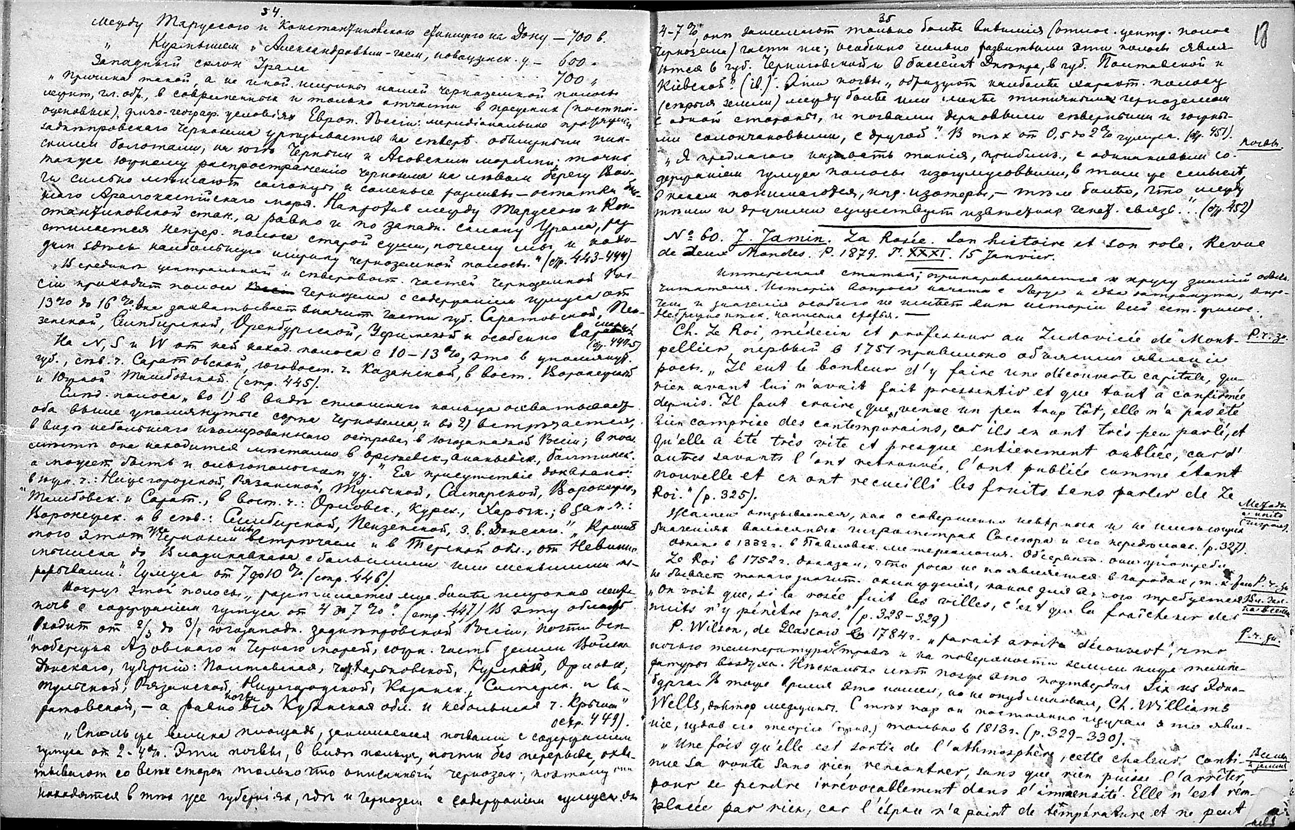 34.
Между Тарусского и Константиновского станцией на Дону — 700 в.
" Курмышем и Александровым-гаем, новоузенск. у — 600 "
Западный склон Урала 700 "
"Причина такой, а не иной ширины нашей черноземной полосы
лежит, гл. обр., в современных и только отчасти в прежних (постплі-
оценовых), физо-географ. условіях Европ. Россіи: меридіональное протяженіе
заднепровского чернозема урезывается на севере обширными пин-
скими болотами, на юге Черным и Азовским морями; точно
также южному распространенію чернозема на левом берегу Вол-
ги сильно мешают солонцы и соленые грязи — остатки быв-
шаго Арало-каспійского моря. Напротив между Тарусского и Кон-
стантиновской стан., а равно и по западн. склону Урала,
тянется непрер. полоса старой суши, почему мы и нахо-
дим здесь наибольшую ширину черноземной полосы." (стр. 443-444)
"В средних центральной и северовост. частей черноземной Рос-
сіи приходит полоса чернозема с содержаніем гумуса от
13% до 16%. Она захватывает значит. части губ. Саратовской, Пен-
зенской, Симбирской, Оренбургской, Уфимской и особенно Самарск.
(стр. 444-5)
На N, S и W от ней наход. полоса с 10–13%, это в упомянут.
губ., сев. ч. Саратовской, юговост. ч. Казанской, в вост. Воронежской
и Южной Тамбовской. (стр. 445).
След. полоса "во 1) в виде сплошного кольца охватывает
оба выше упомянутые сорта чернозема, и во 2) встречается,
в виде небольшого изолированного острова, в югозападной Россіи; в пос.
она находится местами в ореховск., ананьевск., балтинск.
а может быть и ольгопольском уу." Ея присутствіе доказано:
в юж. ч.: Нижегородской, Рязанской, Тульской, Самарской, Воронежск.,
Тамбовск. и Сарат., в вост. ч.: Орловск., Курск., Харьк.; в зап. ч.:
Воронежск. и в сев.: Симбирской, Пензенской, З. в. Донского", "Кроме
того этот же чернозем встречаем и в Терской обл., от Невинно-
мысска до Владикавказа с большими или меньшими пе-
рерывами". Гумуса от 7 до 10% (стр. 446)
Вокруг этой полосы, "располагается еще более широкая лента
почв с содержаніем гумуса от 4 до 7%." (стр. 447) В эту область
входит от 2/3 до 3/4 югозападн. заднепровской Россіи, почти все
"побережья Азовского и Черного морей, юж. часть земли Войска
Донского, губерній: Полтавская, Харьковской, Курской, Орловск.,
Тульской, Рязанской, Нижегородской, Казанск., Самарск. и Са-
ратовской, — а равно вся Кубанская обл. и небольшая ч. Крыма"
(стр. 449).
"Столь же велика площадь, занимаемая почвами с содержаніем
гумуса от 2-4%. Эти почвы, в виде кольца, почти без перерыва, охва-
тывают со всех сторон только что описанный чернозем; поэтому они
находятся в тех же губерніях, где и чернозем с содержаніем гумуса от
35
18
4-7%, они занимают только более внешнія (относ. центр. полос
чернозема) части их; особенно сильно развитыми эти полосы явля-
ются в губ. Черниговской и в бассейне Днепра, в губ. Полтавской и
Кіевской" (ib). Эти почвы "образуют наиболее характ. полосу
(серыя земли) между более или менее типичным черноземом
с одной стороны, и почвами дерновыми северными и южны-
ми солончаковыми, с другой". В них от 0,5 до 2% гумуса. (стр. 451).
"Я предлагаю называть такія, приблиз., с одинаковым со-
держаніем гумуса полосы изогумусовыми, в том же смысле,
в каком понимаются, напр. изотеры, — тем более, что между
теми и другими существует известная генет. связь." (стр. 452)
почвы
№ 60. J. Jamin. La Rosée. Son histoire et son role. Revue
de Deux Mondes. P. 1879. T. XXXI. 15 Janvier.
Интересная статья; приноравливается к кругу знаній обык.
читателя. Исторія вопроса начата с Леруа и едва затронута, впро-
чем, и значенія особого не имеет для исторіи всей ест. филос.
Ch. Le Roi, médecin et professeur au Ludovicée de Mont-
pellier, первый в 1751 правильно объяснил явленіе
росы. "Il eut le bonheur d'y faire une découverte capitale, que
rien avant lui n'avait fait pressentir et que tout a confirmé
depuis. Il faut croire que, venue un peu trop tôt, elle n'a pas été
bien comprise des contemporains, car ils en ont très peu parlé, et
qu'elle a été très vite et presque entièrement oubliée, car d'
autres savants l'ont retrouvée, l'ont publiée comme étant
nouvelle et en ont recueilli les fruits sans parler de Le
Roi." (p. 325).
P. r. gr.
Жамен отзывается, как о совершенно неверных и не имеющих
значенія волосяных гигрометрах Соссюра и его передовых. (p. 327).
однако в 1882 г. в Павловск. метеорологич. Обсерват. они употребл.
Методы
Le Roi в 1752 г. доказал, что роса не появляется в городах, т. к. там
не бывает такого значит. охлажденія, какое для этого требуется
"on voit que, si la rosée fuit les villes, c'est que la fraîcheur des
nuits n'y pénètre pas." (p. 328-329)
P. Wilson, de Glascow в 1784 г. "parait avoir découvert", что
ночью температура травы и на поверхности земли ниже темпе-
ратуры воздуха. Несколько лет позже это подтвердил Six из Эдин-
бурга. В тоже время это нашел, но не опубликовал, Ch. Williams
Wells, доктор медицины. С тех пор он постоянно изучал это явле-
ніе, издав его теорію только в 1813 г. (p. 329–330).
P. r. gr.
"Une fois qu'elle est sortie de l'athmosphère, cette chaleur conti-
nue sa route sans rien rencontrer, sans que rien puisse l'arrêter,
pour se perdre irrévocablement dans l'immensité. Elle n'est rem-
placée par rien, car l'espace n'a point de température et ne peut